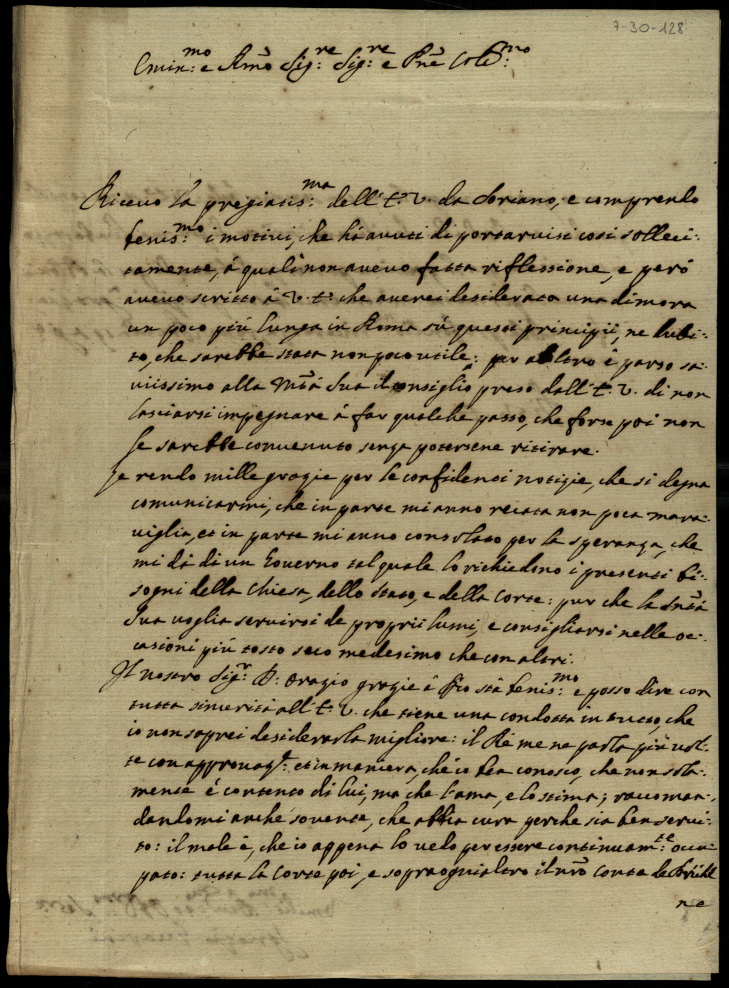 7-30-128
Emin:mo e Rmo Sig:re Sig:re e Pne Col:mo
Ricevo la pregiatis:ma dell'E: V. da Soriano, e comprendo
benis:mo i motivi, che hà avuti di portarvisi così solleci-
tamente, à quali non avevo fatta riflessione, e però
avevo scritto à V. E: che averei desiderata una dimora
un poco più lunga in Roma sù questi principii, ne dubi-
to, che sarebbe stata non poco utile: per altro è parso sa-
viissimo alla Mtà Sua il consiglio preso dall'E: V. di non
lasciarsi impegnare à far qualche passo, che forse poi non
le sarebbe convenuto senza potersene ritirare.
Le rendo mille grazie per le confidenti notizie, che si degna
comunicarmi, che in parte mi anno recata non poca mara-
viglia, et in parte mi anno consolato per la speranza, che
mi dà di un Governo tal quale lo richiedono i presenti bi-
sogni della Chiesa, dello Stato, e della Corte: pur che la Sntà
Sua voglia servirsi de proprii lumi, e consigliarsi nelle oc-
casioni più tosto seco medesimo che con altri.
Il nostro Sig:r D: Orazio grazie à Dio stà benis:mo e posso dire con
tutta sincerità all'E: V. che tiene una condotta in tutto, che
io non saprei desiderarla migliore: il Rè me ne parla più vol-
te con approvaz:e et in maniera, che io ben conosco, che non sola-
mente è contento di lui, ma che l'ama, e lo stima; raccoman-
dandomi anche sovente, che abbia cura perche sia ben servi-
to: il male è, che io appena lo vedo per essere continuam:te occu-
pato: tutta la Corte poi, e sopra ogni altro il nro Conte de Brühl
ne